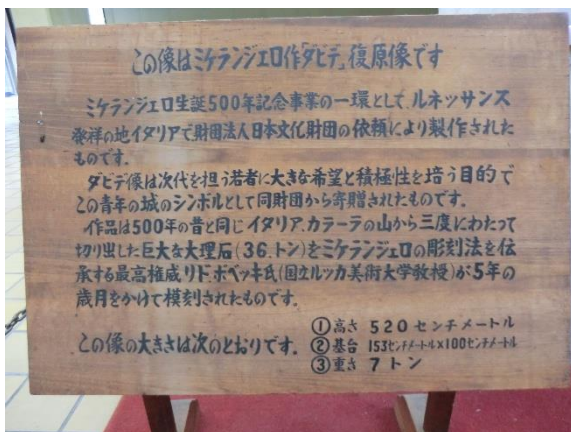 この像はミケランジェロ作「ダビデ」復原像です
ミケランジェロ生誕500年記念事業の一環として、ルネッサンス
発祥の地イタリアで財団法人日本文化財団の依頼により製作された
ものです。
ダビデ像は次代を担う若者に大きな希望と積極性を培う目的で
この青年の城のシンボルとして同財団から寄贈されたものです。
作品は500年の昔と同じイタリア、カラーラの山から三度にわたって
切り出した巨大な大理石(36.トン)をミケランジェロの彫刻法を伝
承する最高権威リド・ボベッキ氏(国立ルッカ美術大学教授)が5年の
歳月をかけて模刻されたものです。
この像の大きさは次のとおりです。
①高さ 520センチメートル
②基台 153センチメートル×100センチメートル
③重さ 7トン